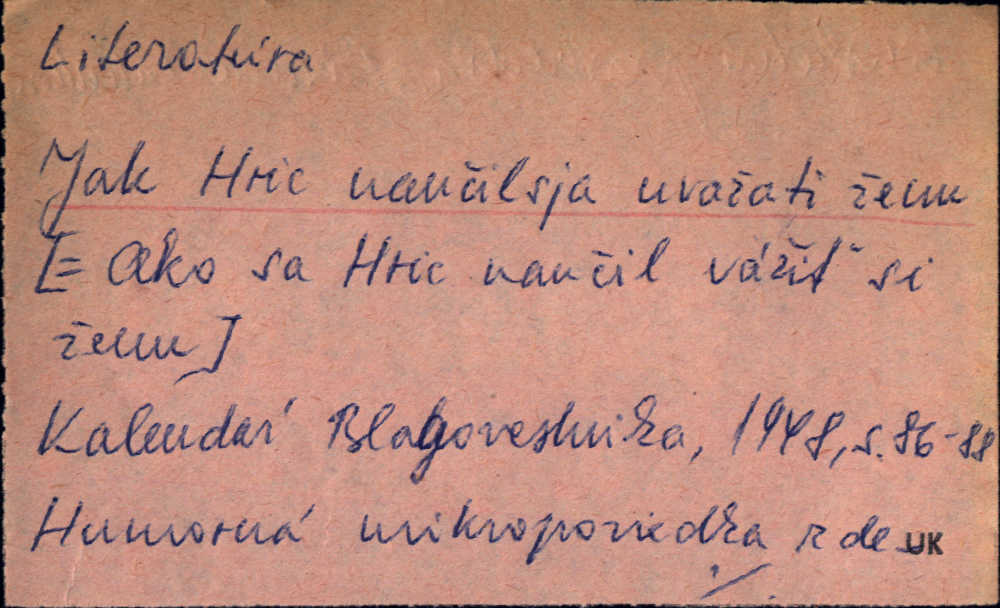 Literatúra
Jak Hric naučilsja uvažati ženu
[= Ako sa Hric naučil vážiť si
ženu]
Kalendar' Blagovestnika, 1948, s. 86-88
Humorná mikropoviedka z de
UK